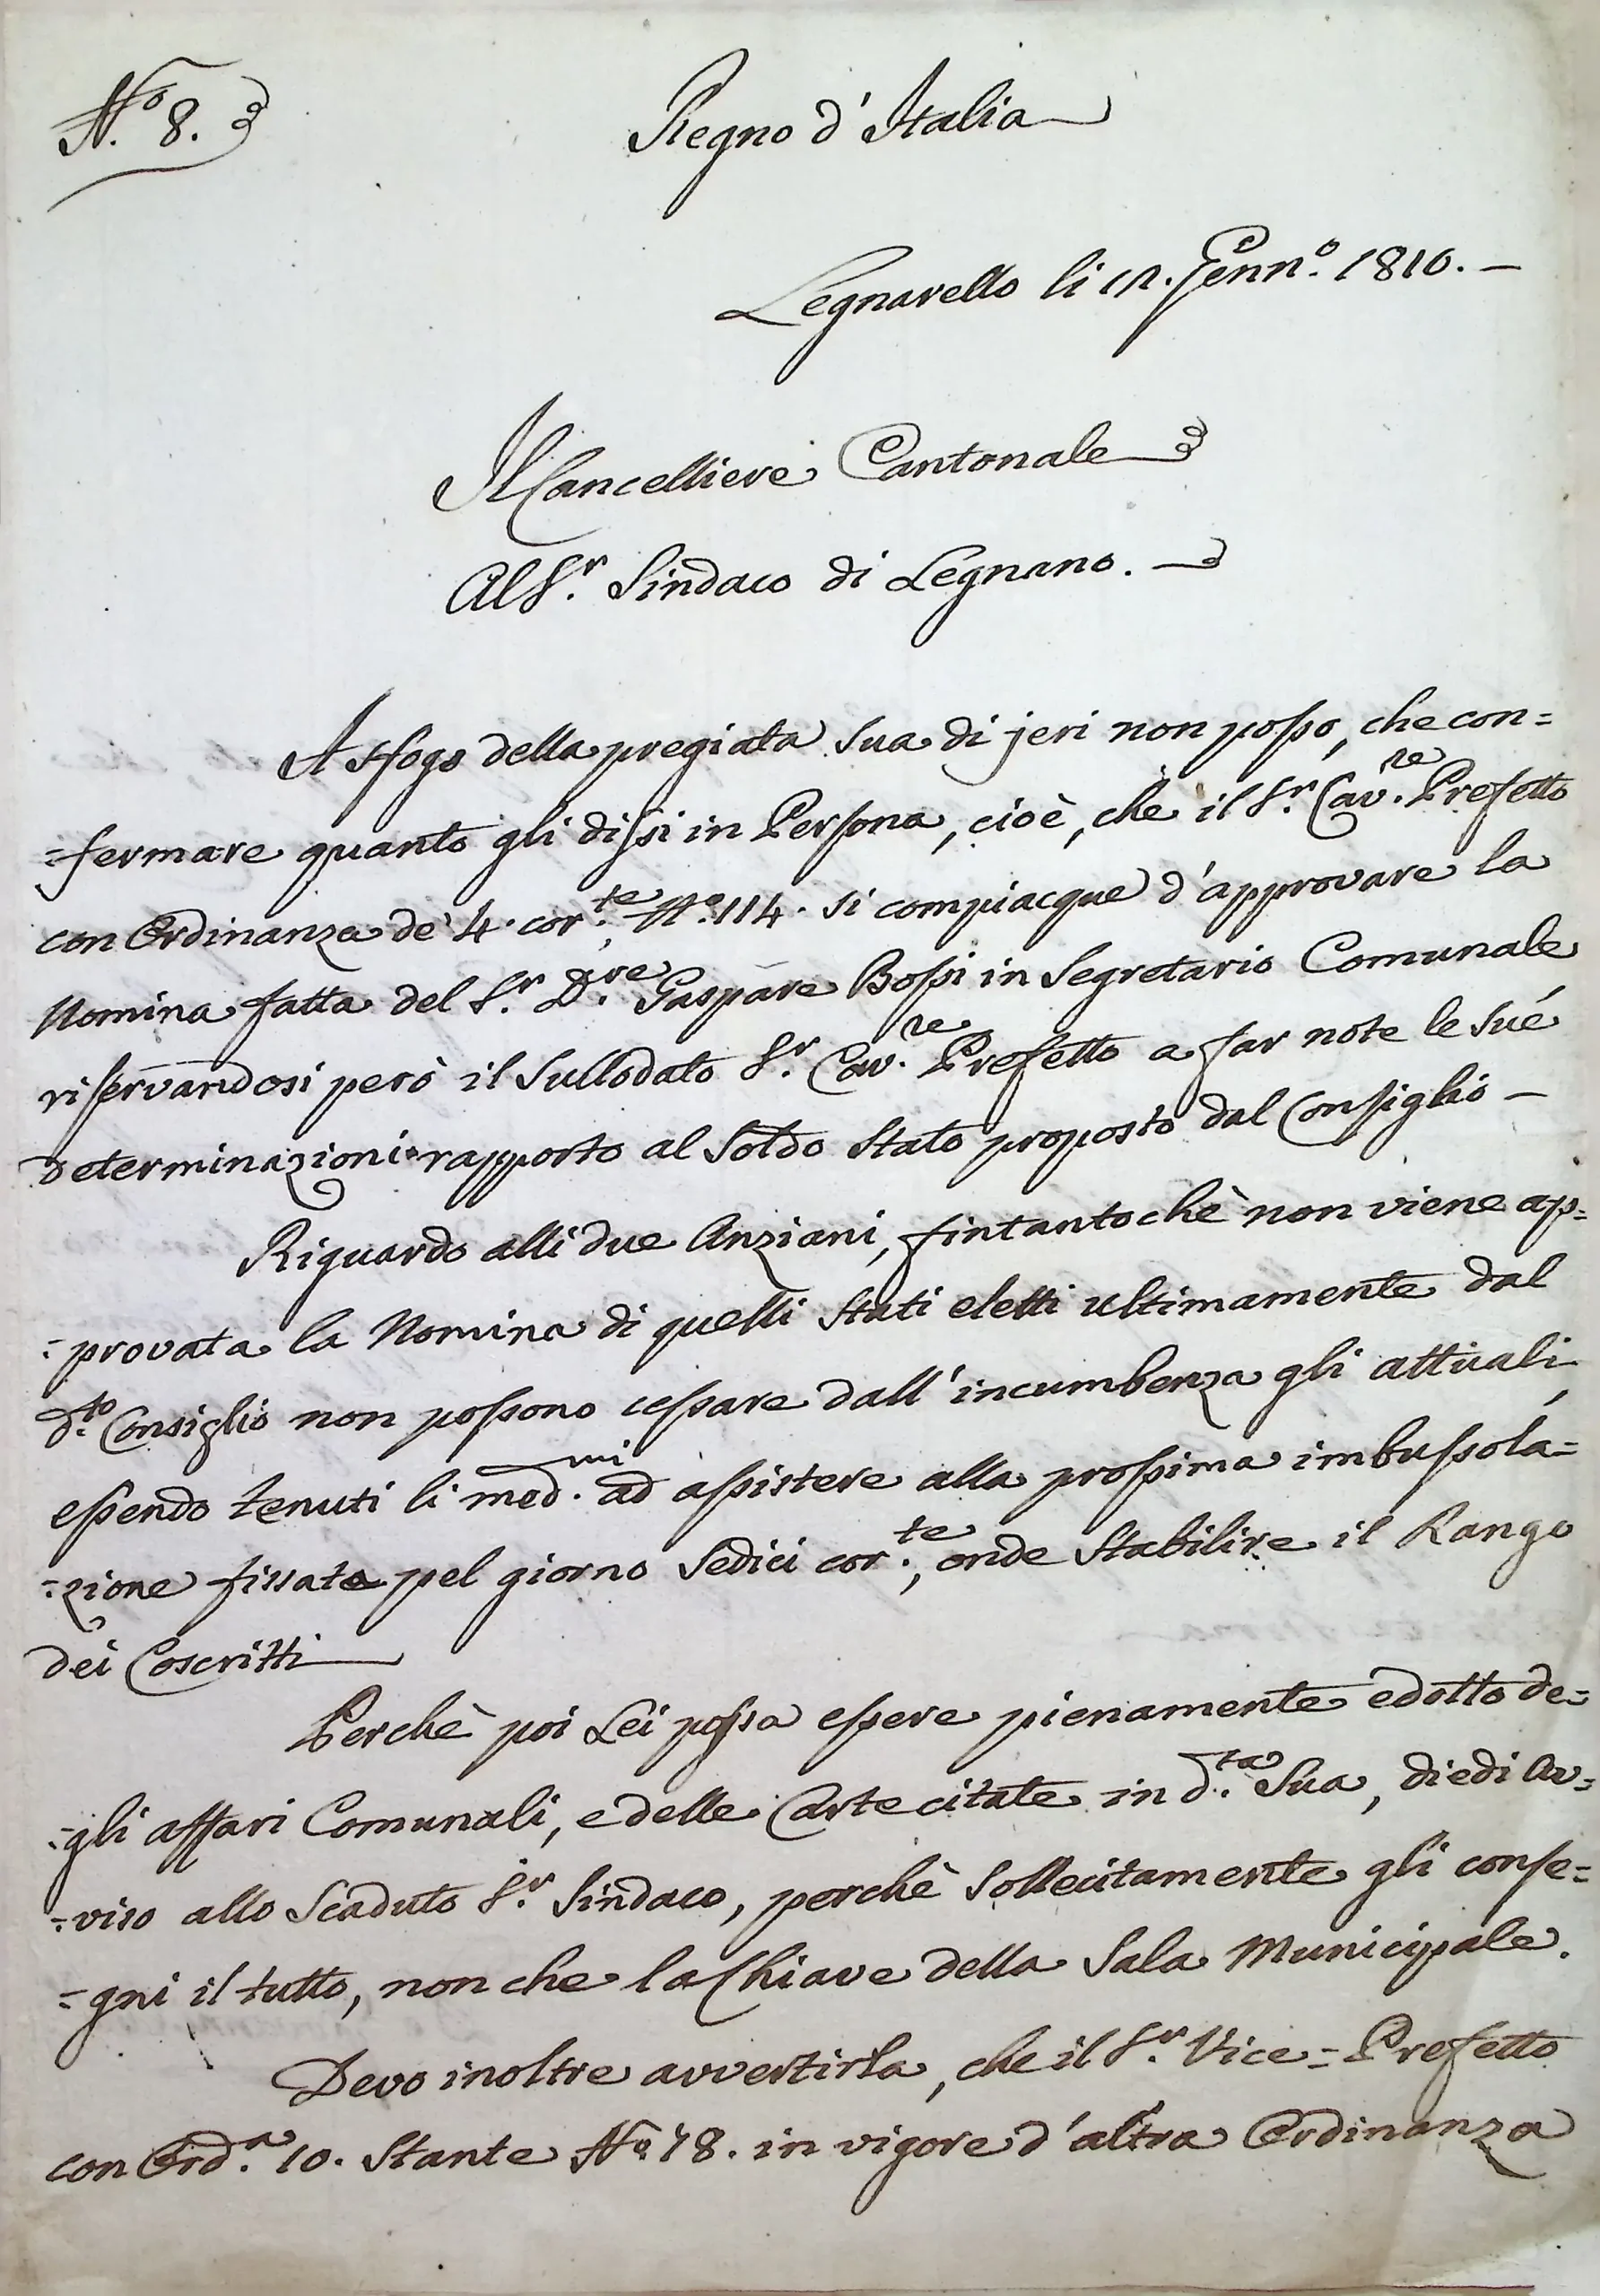 N.º 8.
Regno d'Italia
Legnarello li 12. Genn.º 1810. —
Il Cancelliere Cantonale
Al S.r Sindaco di Legnano. —
A sfogo della pregiata sua di jeri non posso, che con=
=fermare quanto gli dissi in Persona, cioè, che il S.r Cav.re Prefetto
con Ordinanza de' 4. cor.te, N.º 114. si compiacque d'approvare la
Nomina fatta del S.r D.re Gaspare Bossi in Segretario Comunale
riservandosi però il sullodato S.r Cav.re Prefetto a far note le sue
determinazioni rapporto al Soldo Stato proposto dal Consiglio —
Riguardo alli due Anziani, fintantochè non viene ap=
=provata la Nomina di quelli Stati eletti ultimamente dal
d.to Consiglio non possono cessare dall'incumbenza gli attuali,
essendo tenuti li med.mi ad assistere alla prossima imbussola=
=zione fissata pel giorno Sedici cor.te, onde Stabilire il Rango
dei Coscritti
Perchè poi Lei possa essere pienamente edotto de=
=gli affari Comunali, e delle Carte citate in d.ta Sua, diedi av=
=viso allo Scaduto S.r Sindaco, perchè Sollecitamente gli conse=
=gni il tutto, non che la Chiave della Sala Municipale.
Devo inoltre avvertirla, che il S.r Vice=Prefetto
con Ord.a 10. Stante N.º 78. in vigore d'altra Ordinanza